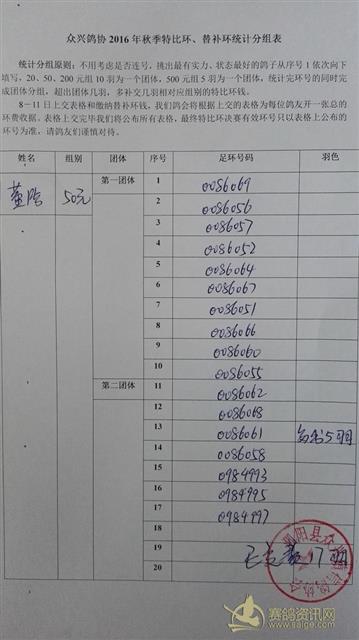 众兴鸽协 2016 年秋季特比环、替补环统计分组表
统计分组原则:不用考虑是否连号,挑出最有实力、状态最好的鸽子从序号 1 依次向下
填写,20、50、200 元组 10 羽为一个团体,500 元组 5 羽为一个团体,统计完环号的同时
完成团体分组,超出团体几羽,多补交几羽相对应组别的特比环钱。
8-11 日上交表格和缴纳替补环钱,我们鸽会将根据上交的表格为每位鸽友开一张总的
环费收据。表格上交完毕我们将公布所有表格,最终特比环决赛有效环号只以表格上公布的
环号为准,请鸽友们谨慎对待。
姓名 组别 团体 序号 足环号码 羽色
50元 第一团体 1 0086069
2 0086056
3 0086057
4 0086052
5 0086064
6 0086067
7 0086051
8 0086066
9 0086060
10 0086055
第二团体 11 0086062
12 0086068
13 0086061
14 0086058
15 0984993
16 0984995
17 0984997
18
19
20
赛鸽资讯网
www.saige.com